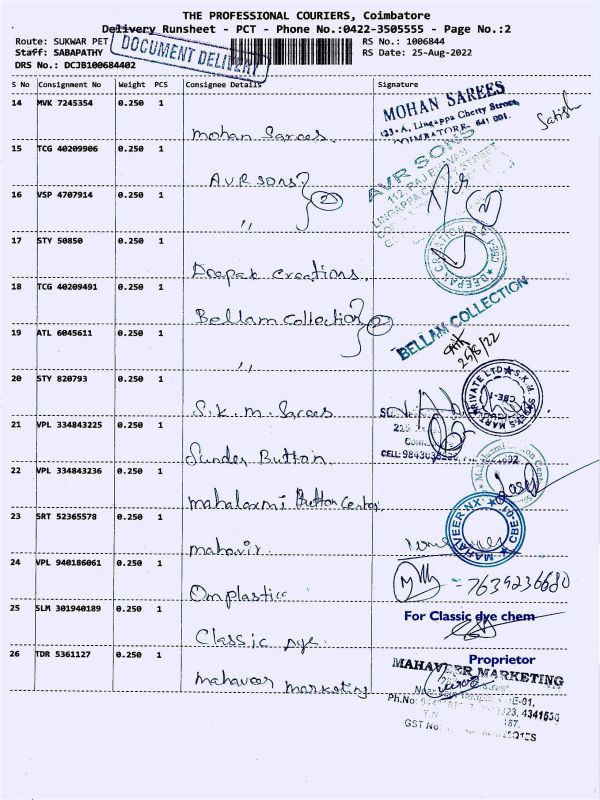 THE PROFESSIONAL COURIERS, Coimbatore
Delivery Runsheet - PCT - Phone No.:0422-3505555 - Page No.:2
Route: SUKWAR PET
RS No.: 1006844
Staff: SABAPATHY
RS Date: 25-Aug-2022
DRS No.: DCJB100684402
DOCUMENT DELIVERY
S No Consignment No Weight PCS Consignee Details Signature
14 MVK 7245354 0.250 1
Mohan Sarees.
MOHAN SAREES
123-A, Lingappa Chetty Street,
COIMBATORE 641 001.
Satish
15 TCG 40209906 0.250 1
A.V.R Sons
AVR SONS
16 VSP 4707914 0.250 1
" 2
17 STY 50850 0.250 1
Deepak Creations.
DEEPAK CREATION
18 TCG 40209491 0.250 1
Bellam Collection
BELLAM COLLECTION
19 ATL 6045611 0.250 1
" 2
25/8/22
20 STY 820793 0.250 1
S.K.M. Sarees
S.K.M. SAREES MART PRIVATE LTD
CBE-1
21 VPL 334843225 0.250 1
Sunder Button.
22 VPL 334843236 0.250 1
mahalaxmi Button Center
23 SRT 52365578 0.250 1
mahavir
MAHAVEER NX
CBE-01
24 VPL 940186061 0.250 1
Omplastic
= 7639236680
25 SLM 301940189 0.250 1
Classic dye
For Classic dye chem
Proprietor
26 TDR 5361127 0.250 1
mahaveer marketing
MAHAVEER MARKETING